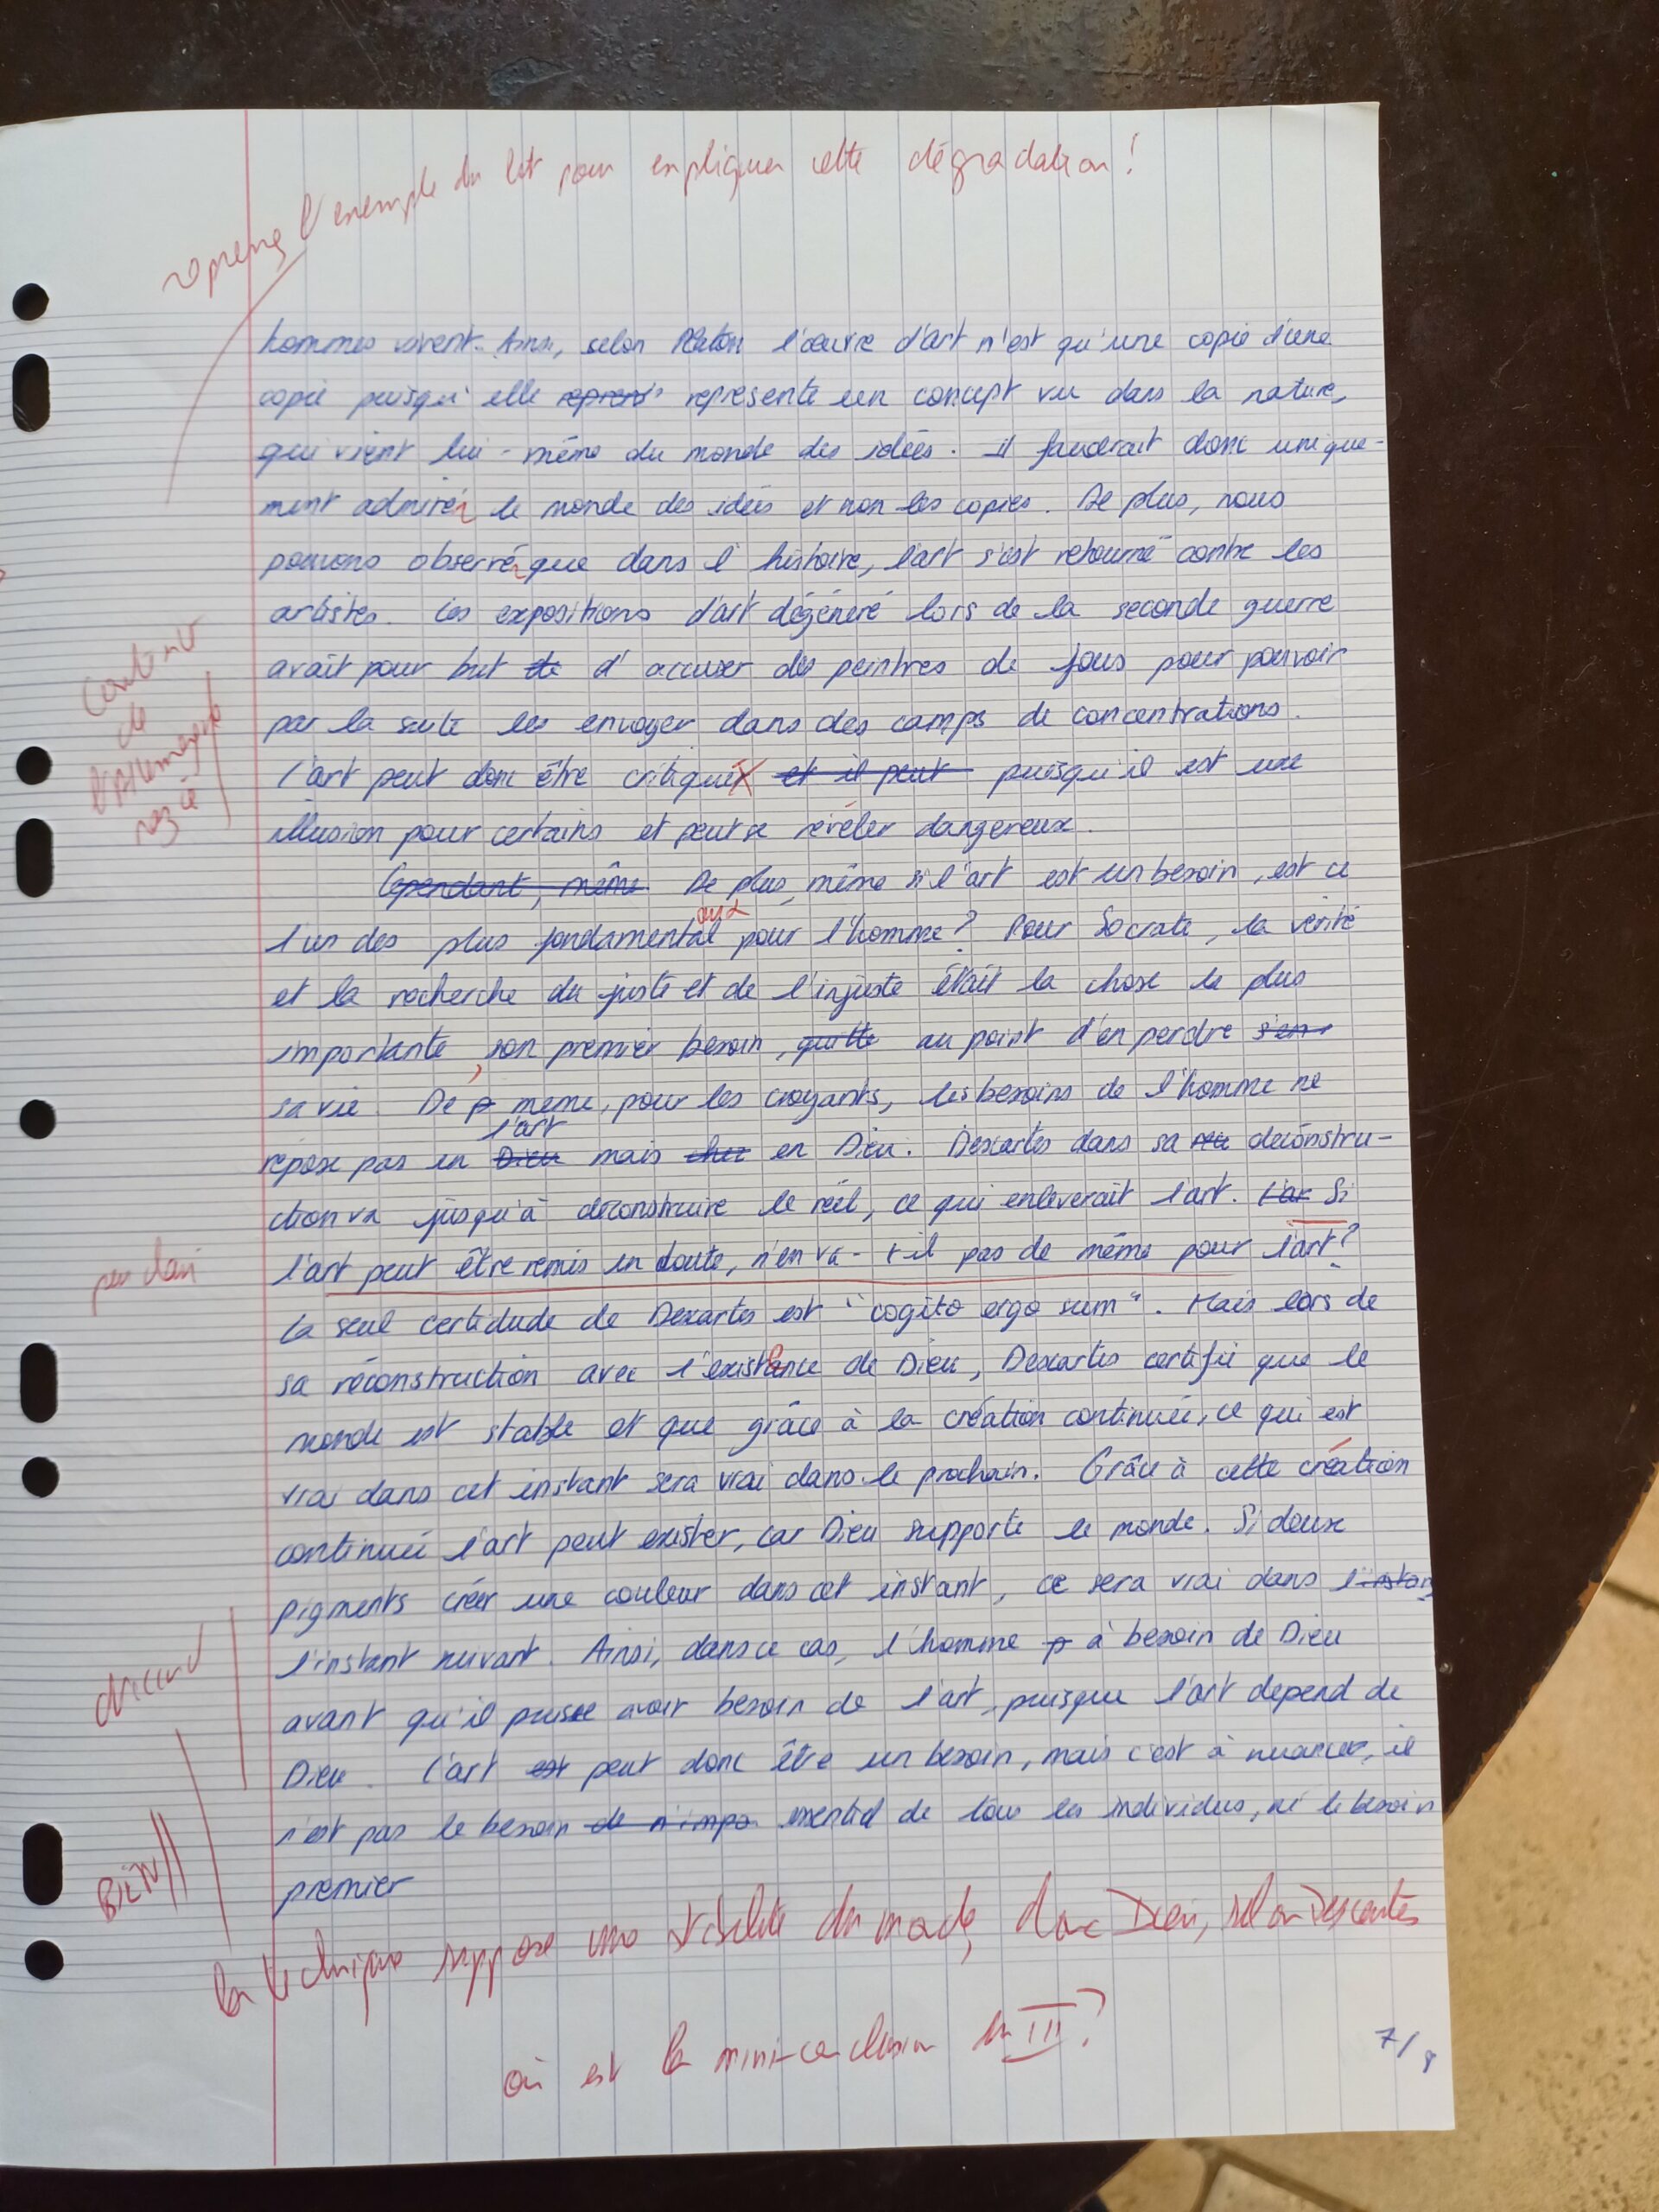 reprenez l'exemple du lit pour expliquer cette dégradation !
hommes vivent. Ainsi, selon Platon l'œuvre d'art n'est qu'une copie d'une
copie puisqu'elle représente un concept vu dans la nature,
qui vient lui-même du monde des idées. Il faudrait donc unique-
ment admirér le monde des idées et non les copies. De plus, nous
pouvons observér que dans l'histoire, l'art s'est retourné contre les
artistes. Les expositions d'art dégénéré lors de la seconde guerre
avait pour but de d'accuser des peintres de fous pour pouvoir
par la suite les envoyer dans des camps de concentrations.
Contexte
de
l'Allemagne
nazie
L'art peut donc être critiqué et il peut puisqu'il est une
illusion pour certains et peut se révéler dangereux.
Cependant, même De plus, même si l'art est un besoin, est ce
aux
l'un des plus fondamental pour l'homme ? Pour Socrate, la vérité
et la recherche du juste et de l'injuste était la chose la plus
importante, son premier besoin, quitte au point d'en perdre s'en
sa vie. De p même, pour les croyants, les besoins de l'homme ne
l'art
repose pas en Dieu mais chez en Dieu. Descartes dans sa déconstru-
ction va jusqu'à déconstruire le réel, ce qui enleverait l'art. L'ar Si
peu clair
l'art peut être remis en doute, n'en va-t-il pas de même pour l'art ?
La seul certidude de Descartes est "cogito ergo sum". Mais lors de
sa réconstruction avec l'existence de Dieu, Descartes certifie que le
monde est stable et que grâce à la création continuée, ce qui est
vrai dans cet instant sera vrai dans le prochain. Grâce à cette création
continuée l'art peut exister, car Dieu supporte le monde. Si deux
pigments créer une couleur dans cet instant, ce sera vrai dans l'instan
l'instant suivant. Ainsi, dans ce cas, l'homme p à besoin de Dieu
d'accord
avant qu'il puisse avoir besoin de l'art, puisque l'art depend de
Dieu. L'art est peut donc être un besoin, mais c'est à nuancer, il
n'est pas le besoin de n'impo essentiel de tous les individus, ni le besoin
BIEN
premier
la technique suppose une stabilité du monde, donc Dieu, selon Descartes
où est la mini-conclusion du III ?
7/8